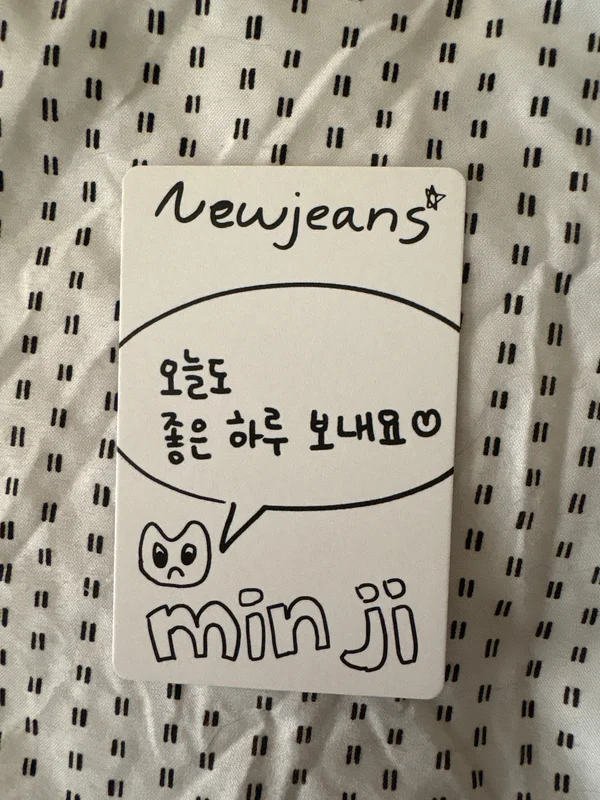 Newjeans
오늘도
좋은 하루 보내요
min ji